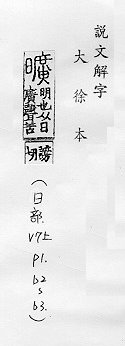 説文解字
大徐本
曠
明也从日
廣聲苦
謗切
(日部.
V7上
P1.
b2
s
b3.)